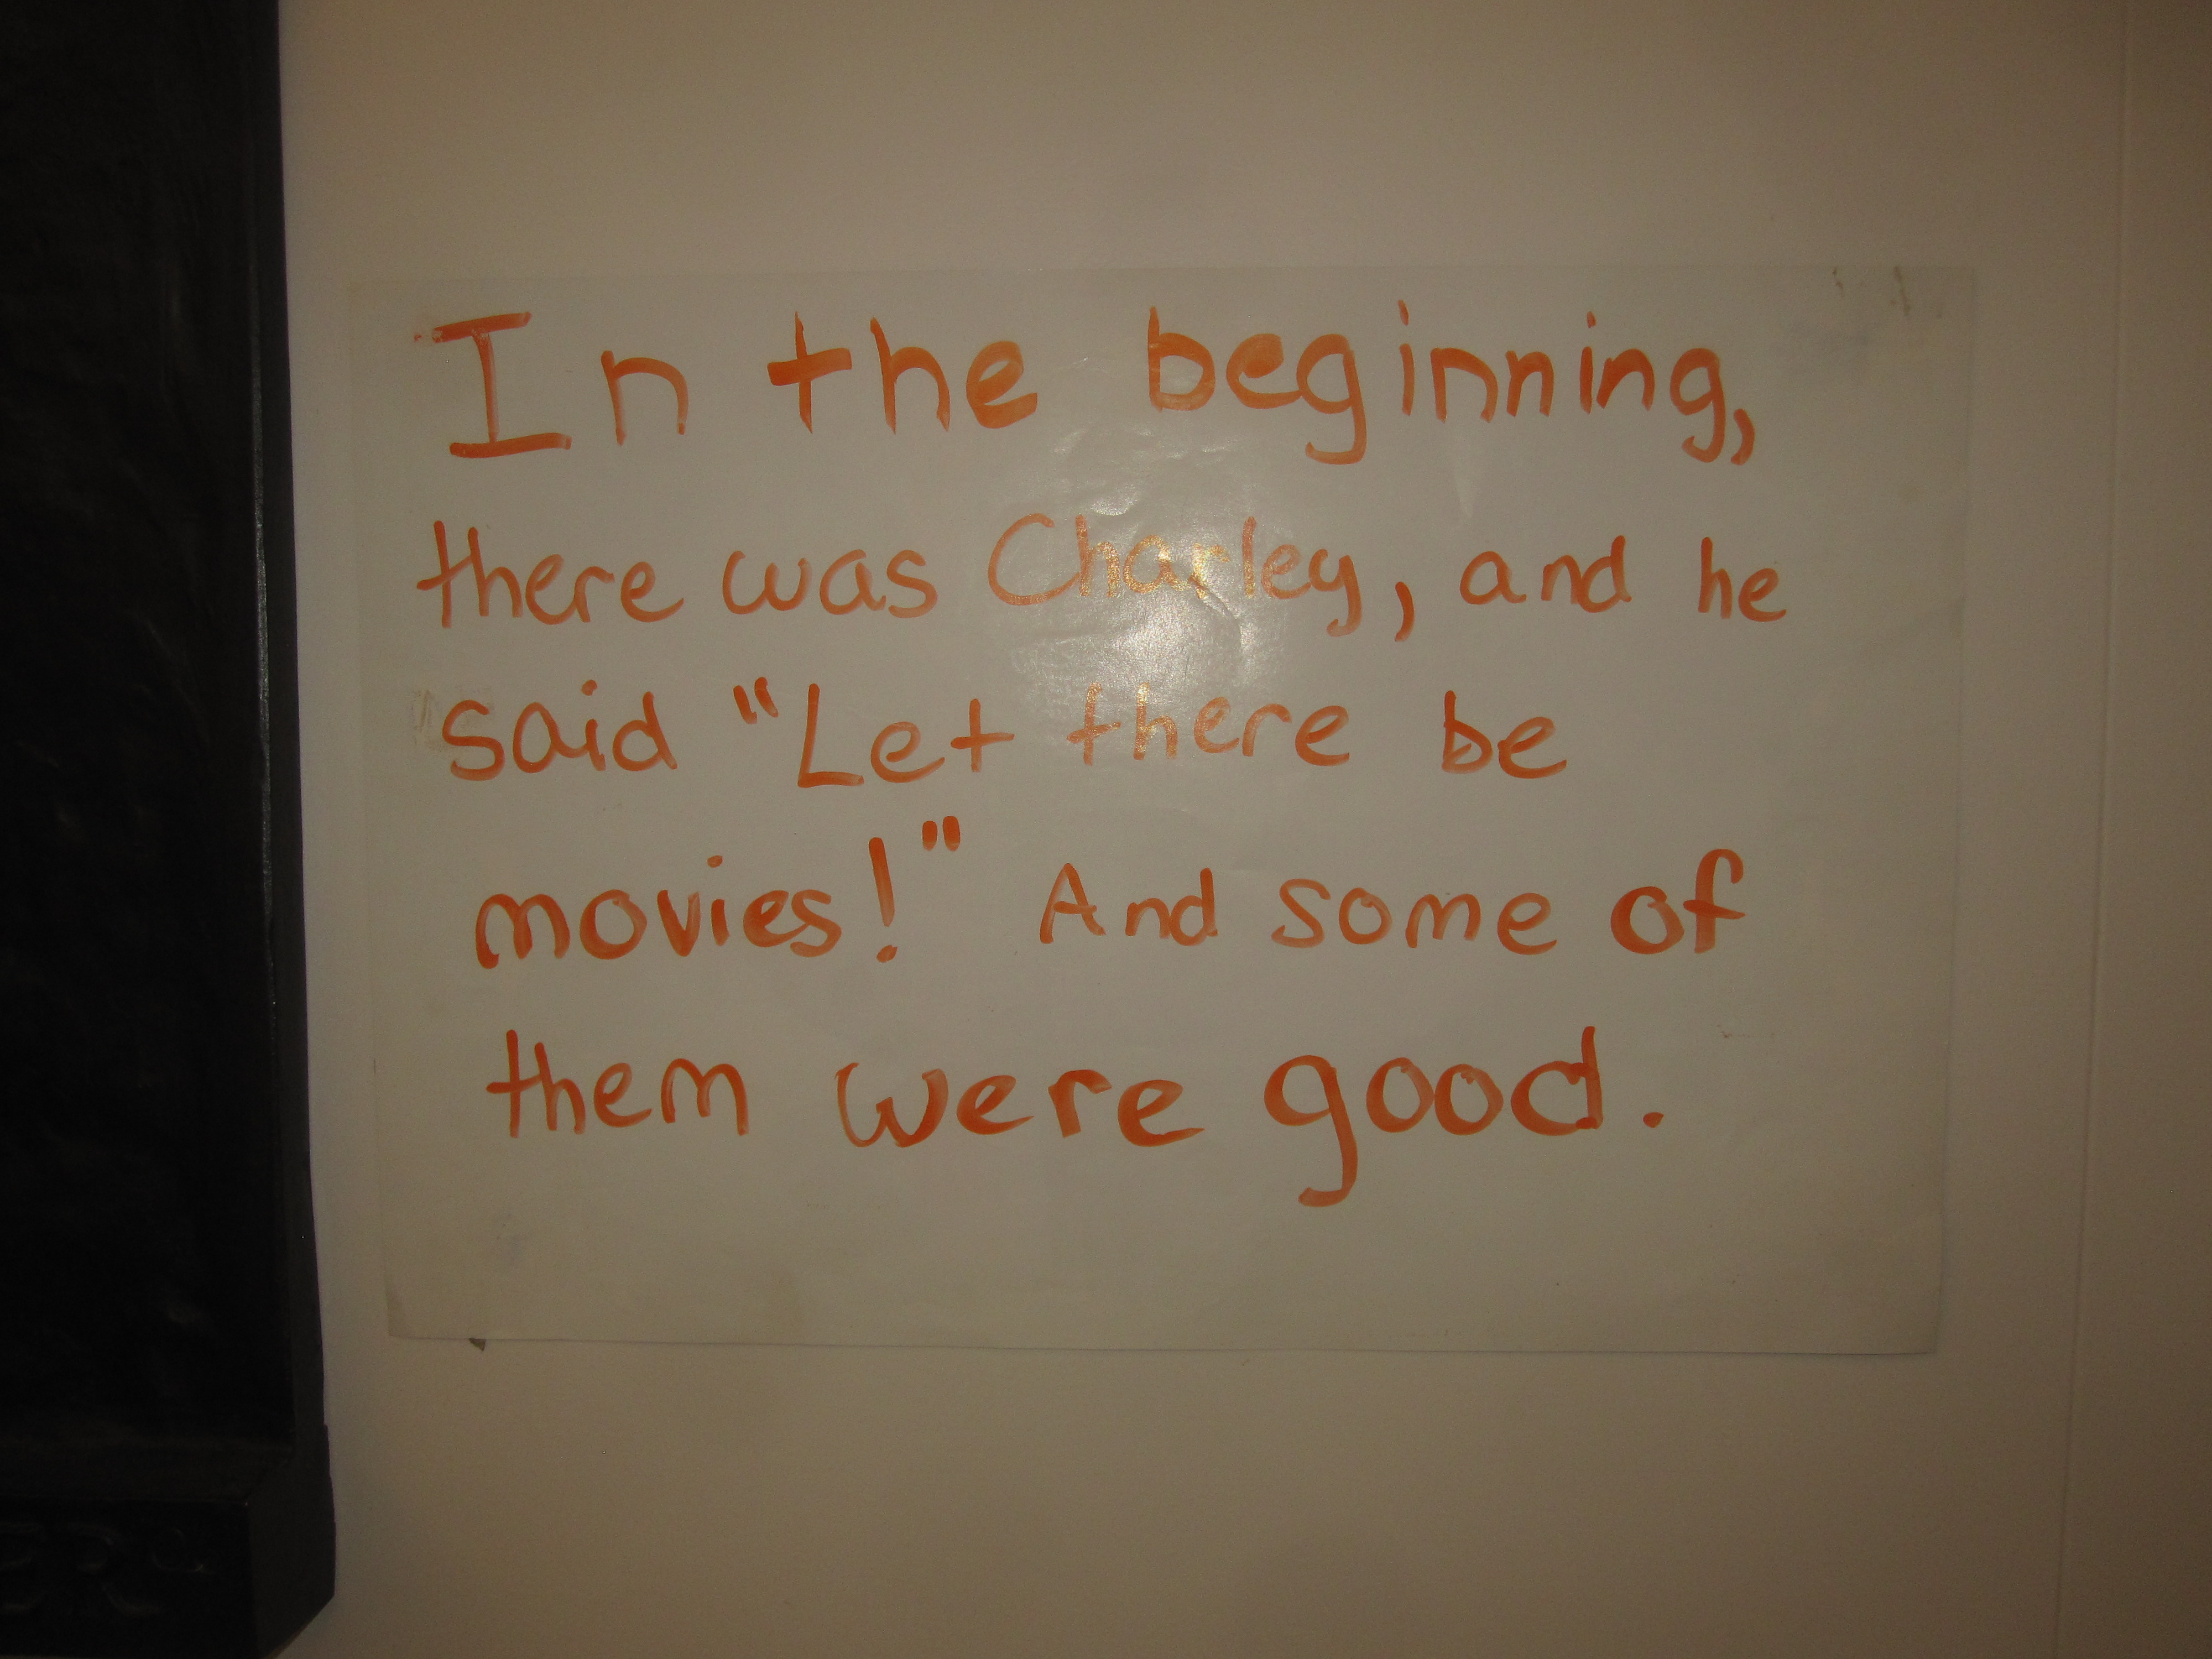 In the beginning,
there was Charley, and he
said "Let there be
movies!" And some of
them were good.